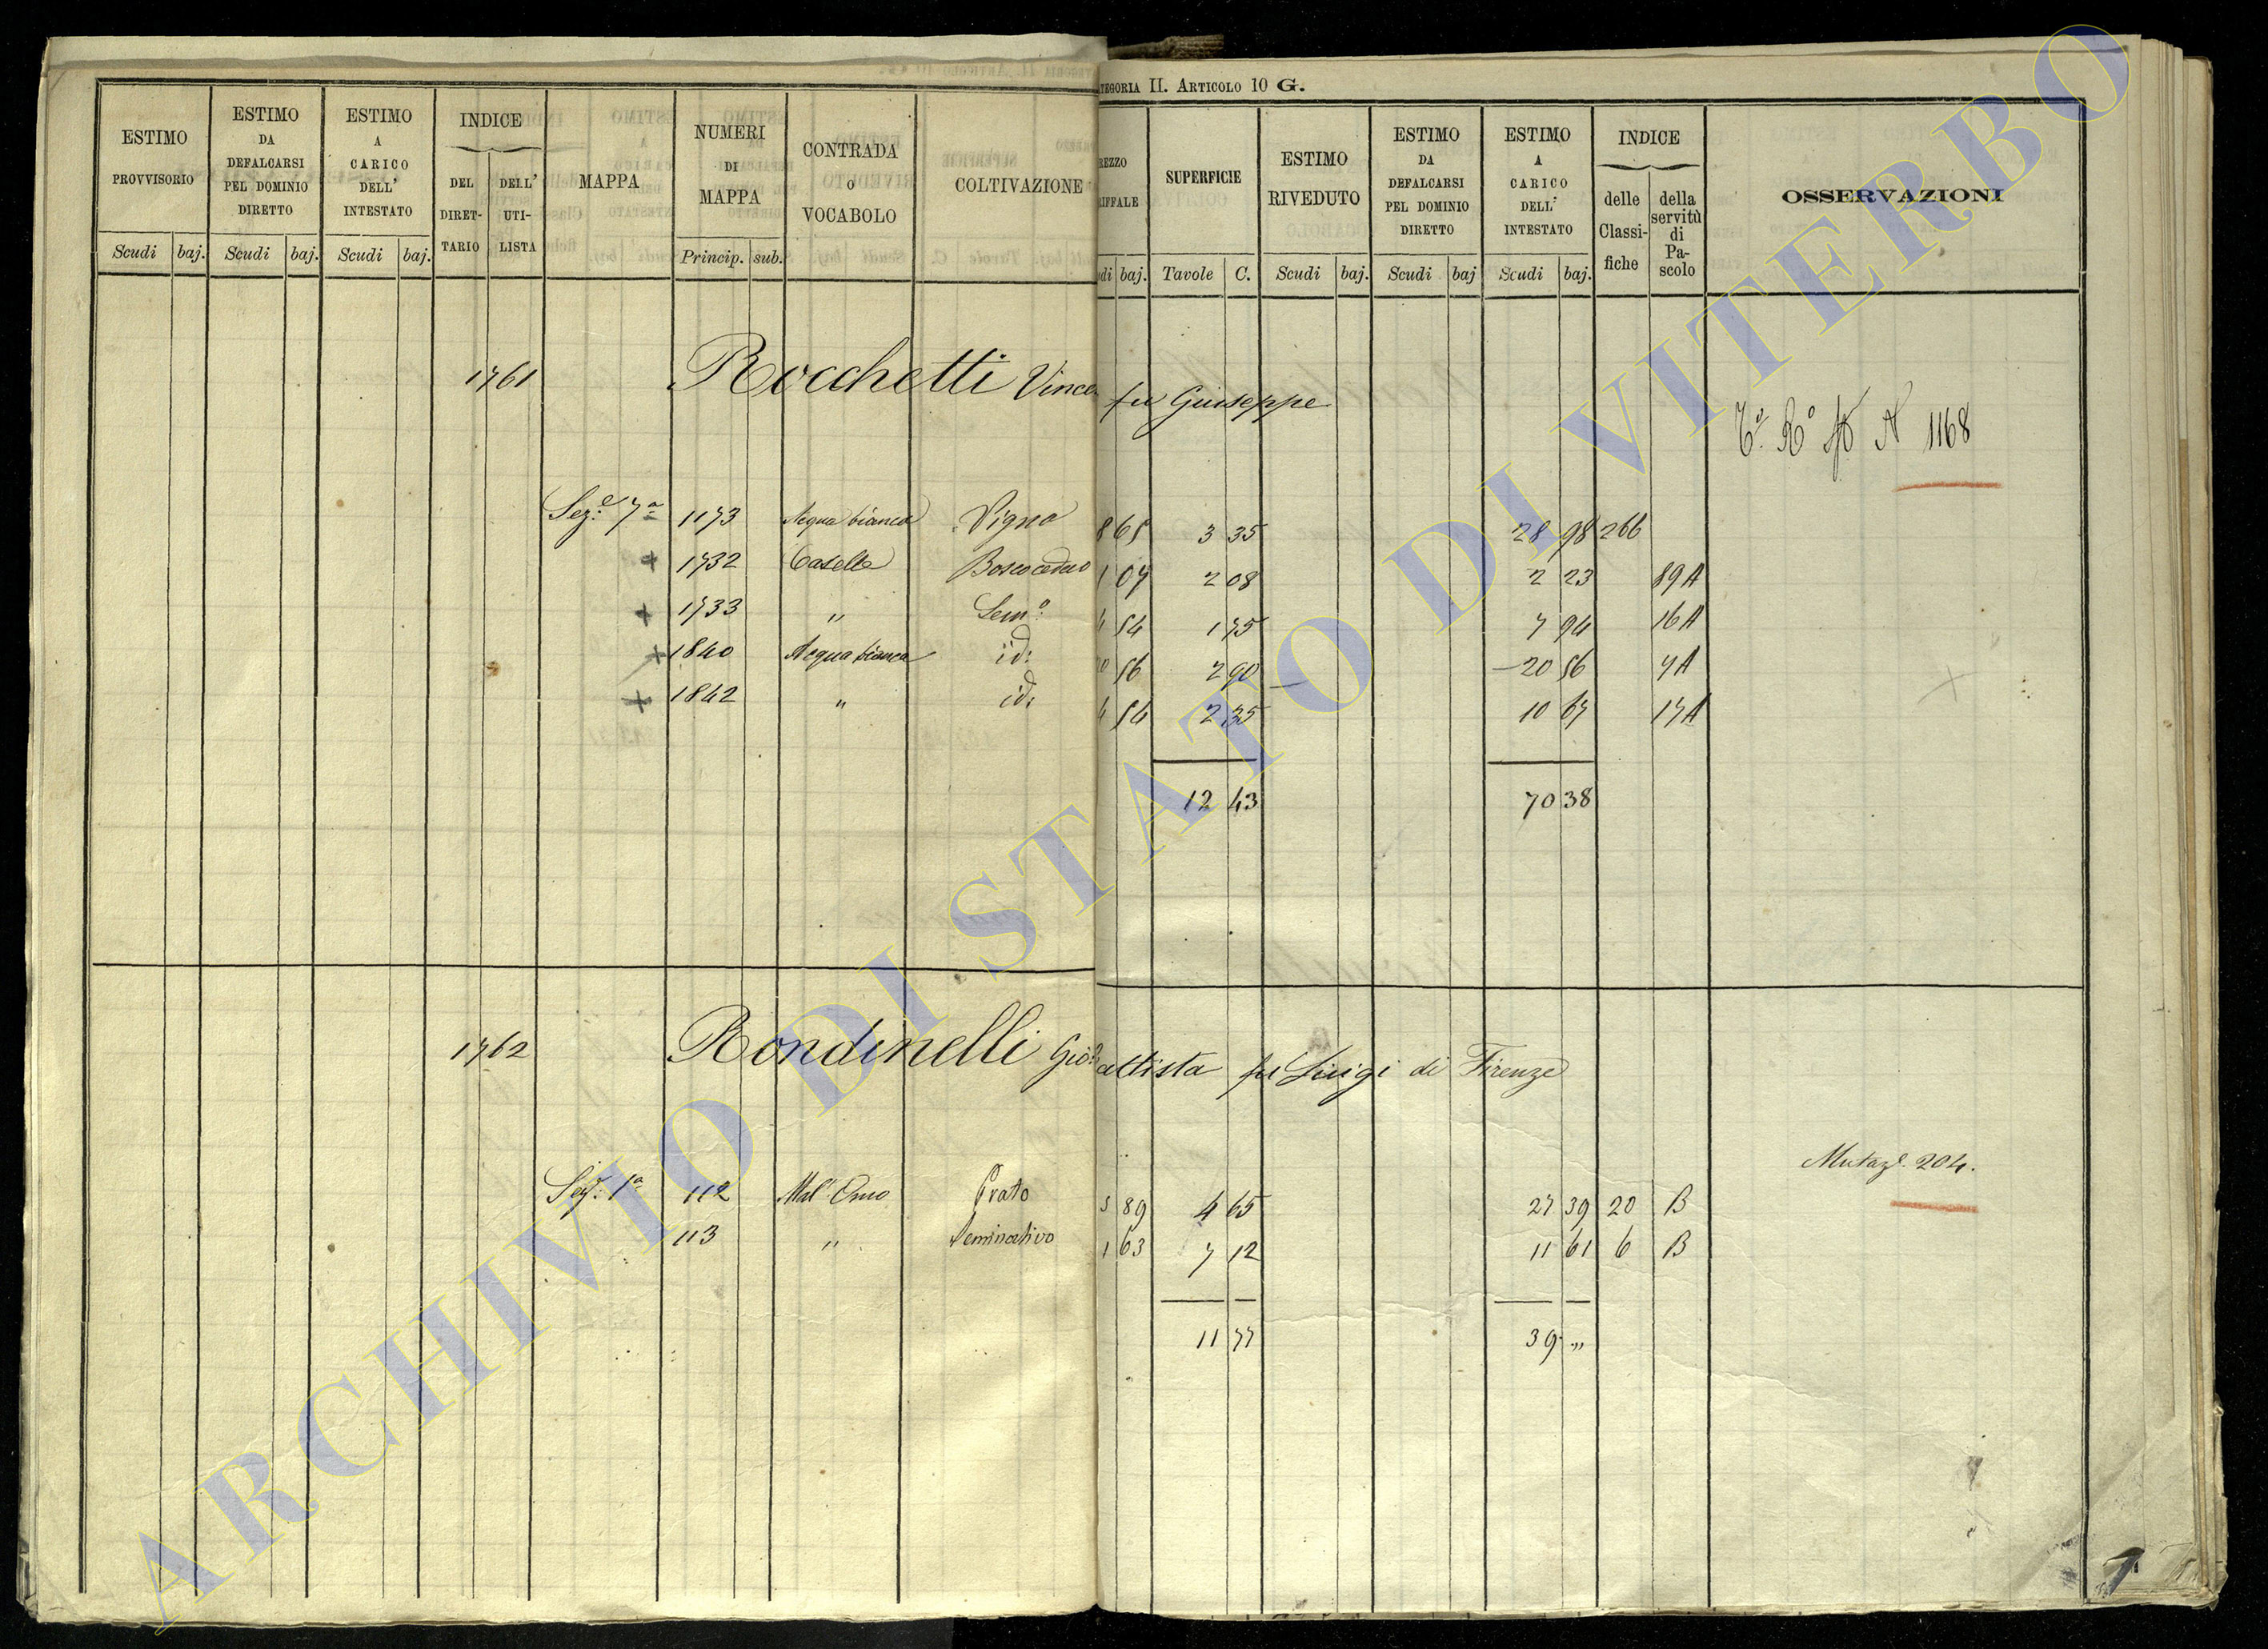 TEGORIA II. ARTICOLO 10 G.
ESTIMO PROVVISORIO
Scudi baj.
ESTIMO DA DEFALCARSI PEL DOMINIO DIRETTO
Scudi baj.
ESTIMO A CARICO DELL' INTESTATO
Scudi baj.
INDICE
DEL DIRET-TARIO
DELL' UTI-LISTA
MAPPA
NUMERI DI MAPPA
Princip. sub.
CONTRADA O VOCABOLO
COLTIVAZIONE
REZZO RIFFALE
di baj.
SUPERFICIE
Tavole C.
ESTIMO RIVEDUTO
Scudi baj.
ESTIMO DA DEFALCARSI PEL DOMINIO DIRETTO
Scudi baj
ESTIMO A CARICO DELL' INTESTATO
Scudi baj.
INDICE
delle Classi-fiche
della servitù di Pa-scolo
OSSERVAZIONI
1761 Rocchetti Vince fu Giuseppe
N 1168
Sez.e 7a 1173 Acqua bianca Vigna 8 65 3 35 28 98 266
+ 1732 Caselle Bosco ceduo 1 07 2 08 2 23 89A
+ 1733 " Sem.o 4 54 1 75 7 94 16A
+ 1840 Acqua bianca id: 0 56 2 90 20 56 7A
+ 1842 " id: 4 54 2 35 10 67 17A
12 43 70 38
1762 Rondinelli Gio: Battista fu Luigi di Firenze
Mutaz.e 204.
Sez.e 1a 112 Prato 5 89 4 65 27 39 20 B
113 " Seminativo 1 63 7 12 11 61 6 B
11 77 39 "
ARCHIVIO DI STATO DI VITERBO